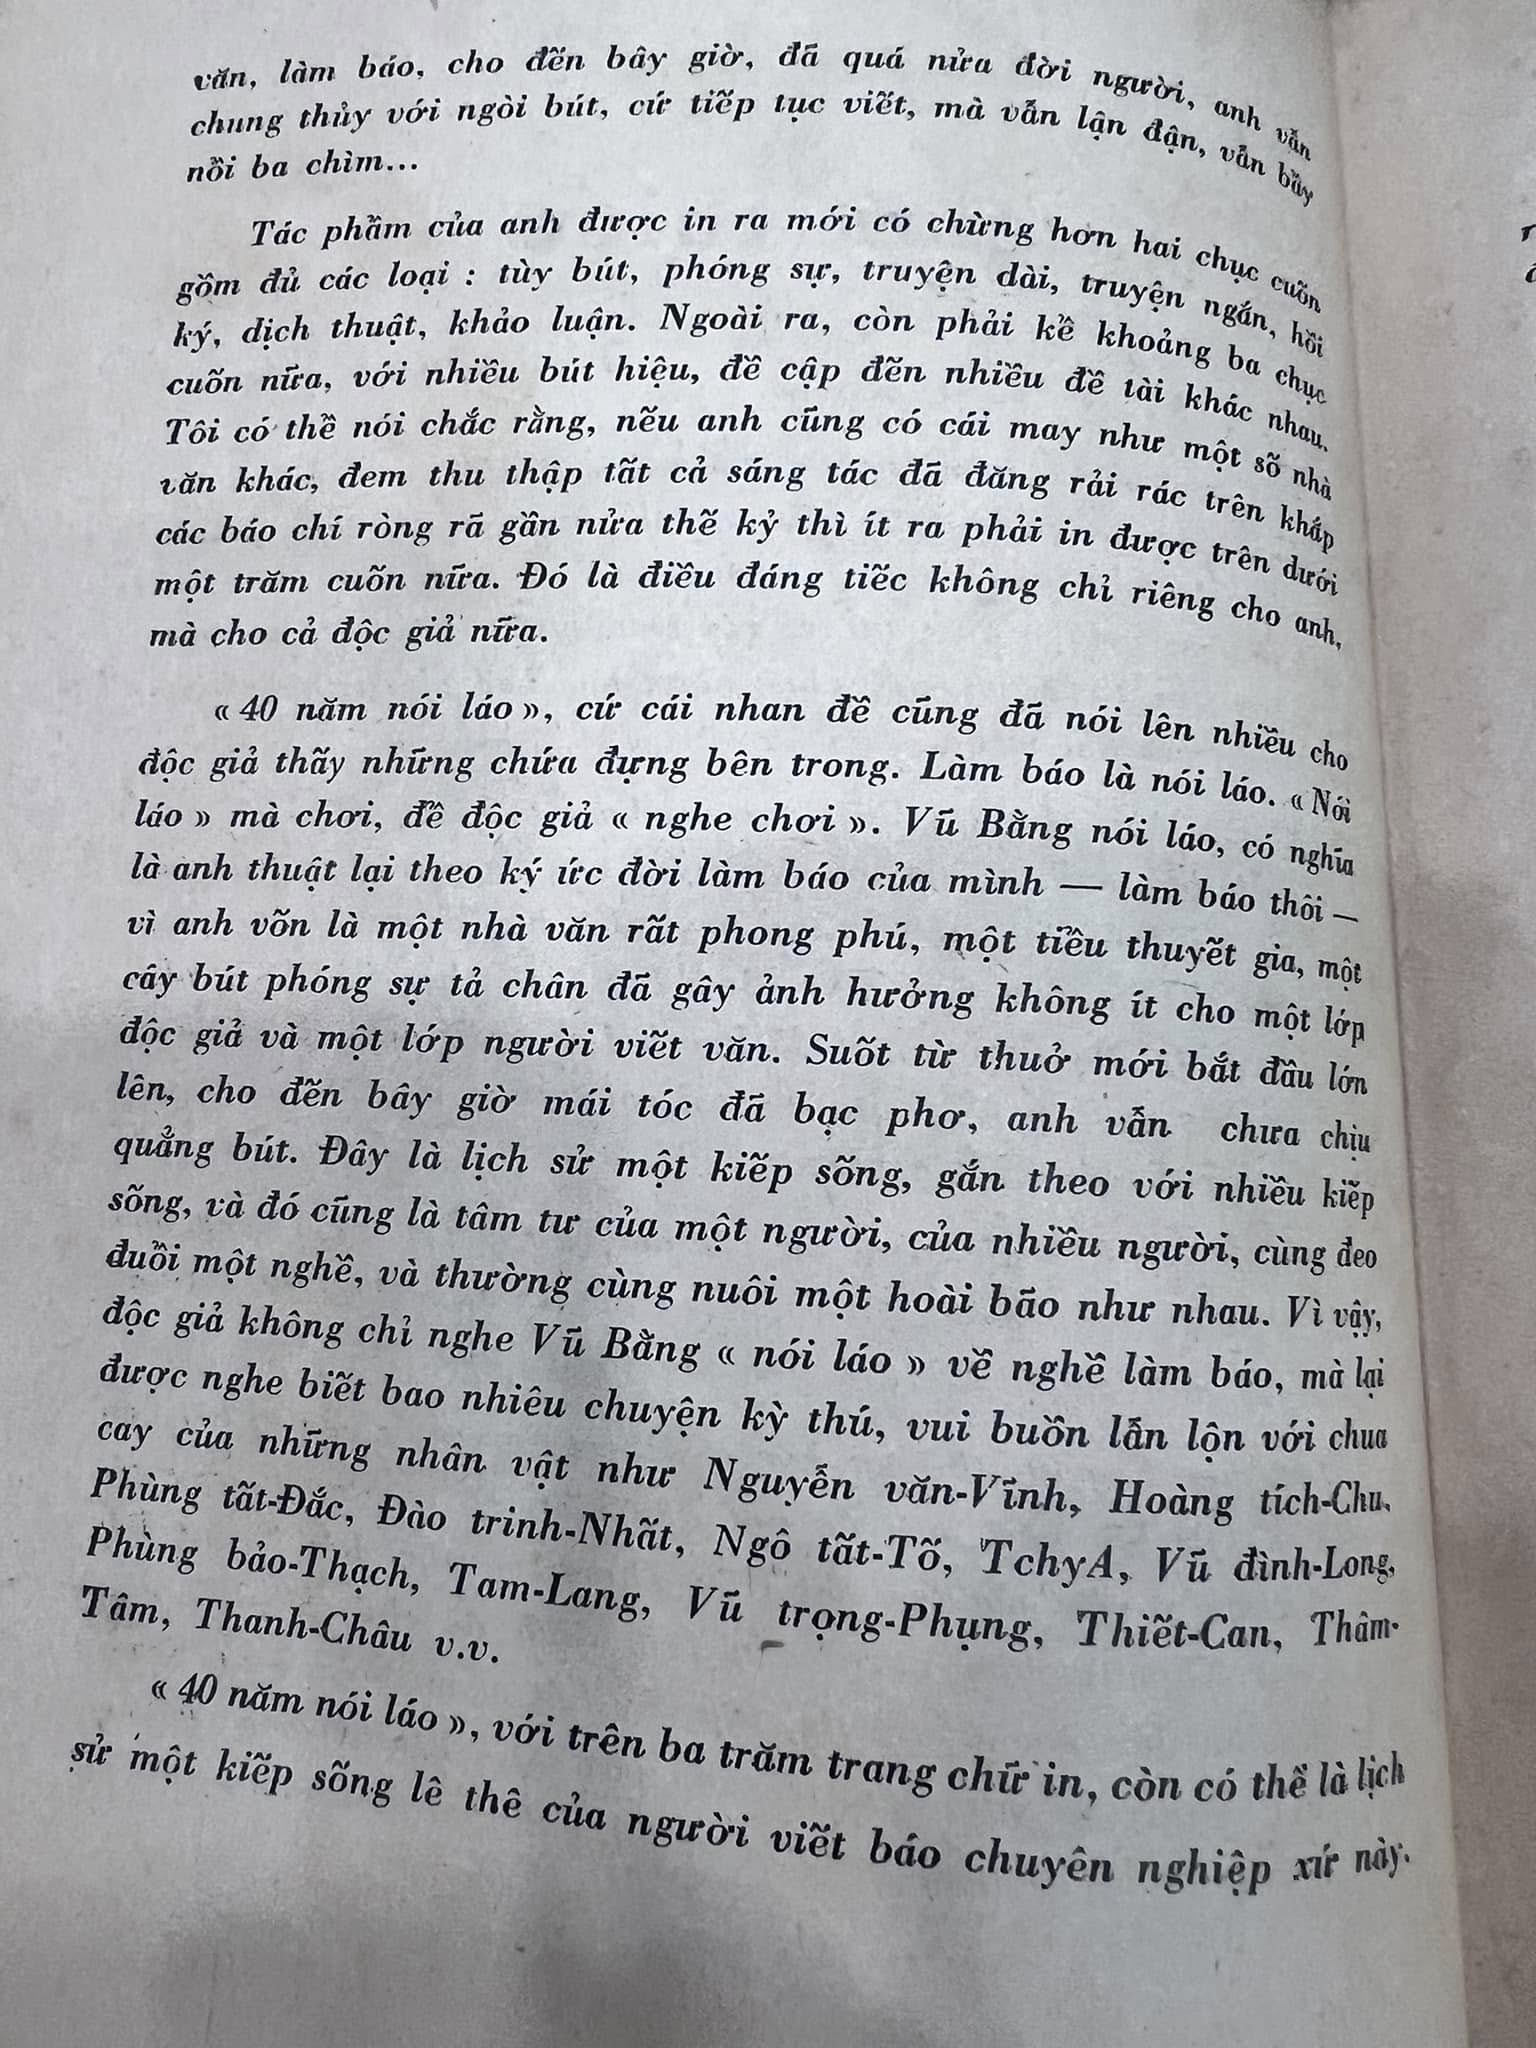 văn, làm báo, cho đến bây giờ, đã quá nửa đời người, anh vẫn
chung thủy với ngòi bút, cứ tiếp tục viết, mà vẫn lận đận, vẫn bầy
nổi ba chìm...
Tác phẩm của anh được in ra mới có chừng hơn hai chục cuốn
gồm đủ các loại : tùy bút, phóng sự, truyện dài, truyện ngắn, hồi
ký, dịch thuật, khảo luận. Ngoài ra, còn phải kể khoảng ba chục
cuốn nữa, với nhiều bút hiệu, đề cập đến nhiều đề tài khác nhau.
Tôi có thể nói chắc rằng, nếu anh cũng có cái may như một số nhà
văn khác, đem thu thập tất cả sáng tác đã đăng rải rác trên khắp
các báo chí ròng rã gần nửa thế kỷ thì ít ra phải in được trên dưới
một trăm cuốn nữa. Đó là điều đáng tiếc không chỉ riêng cho anh,
mà cho cả độc giả nữa.
« 40 năm nói láo », cứ cái nhan đề cũng đã nói lên nhiều cho
độc giả thấy những chứa đựng bên trong. Làm báo là nói láo. « Nói
láo » mà chơi, để độc giả « nghe chơi ». Vũ Bằng nói láo, có nghĩa
là anh thuật lại theo ký ức đời làm báo của mình — làm báo thôi —
vì anh vốn là một nhà văn rất phong phú, một tiểu thuyết gia, một
cây bút phóng sự tả chân đã gây ảnh hưởng không ít cho một lớp
độc giả và một lớp người viết văn. Suốt từ thuở mới bắt đầu lớn
lên, cho đến bây giờ mái tóc đã bạc phơ, anh vẫn chưa chịu
quẳng bút. Đây là lịch sử một kiếp sống, gắn theo với nhiều kiếp
sống, và đó cũng là tâm tư của một người, của nhiều người, cùng đeo
đuổi một nghề, và thường cùng nuôi một hoài bão như nhau. Vì vậy,
độc giả không chỉ nghe Vũ Bằng « nói láo » về nghề làm báo, mà lại
được nghe biết bao nhiêu chuyện kỳ thú, vui buồn lẫn lộn với chua
cay của những nhân vật như Nguyễn văn-Vĩnh, Hoàng tích-Chu,
Phùng tất-Đắc, Đào trinh-Nhất, Ngô tất-Tố, TchyA, Vũ đình-Long,
Phùng bảo-Thạch, Tam-Lang, Vũ trọng-Phụng, Thiết-Can, Thâm-
Tâm, Thanh-Châu v.v.
« 40 năm nói láo », với trên ba trăm trang chữ in, còn có thể là lịch
sử một kiếp sống lê thê của người viết báo chuyên nghiệp xứ này.